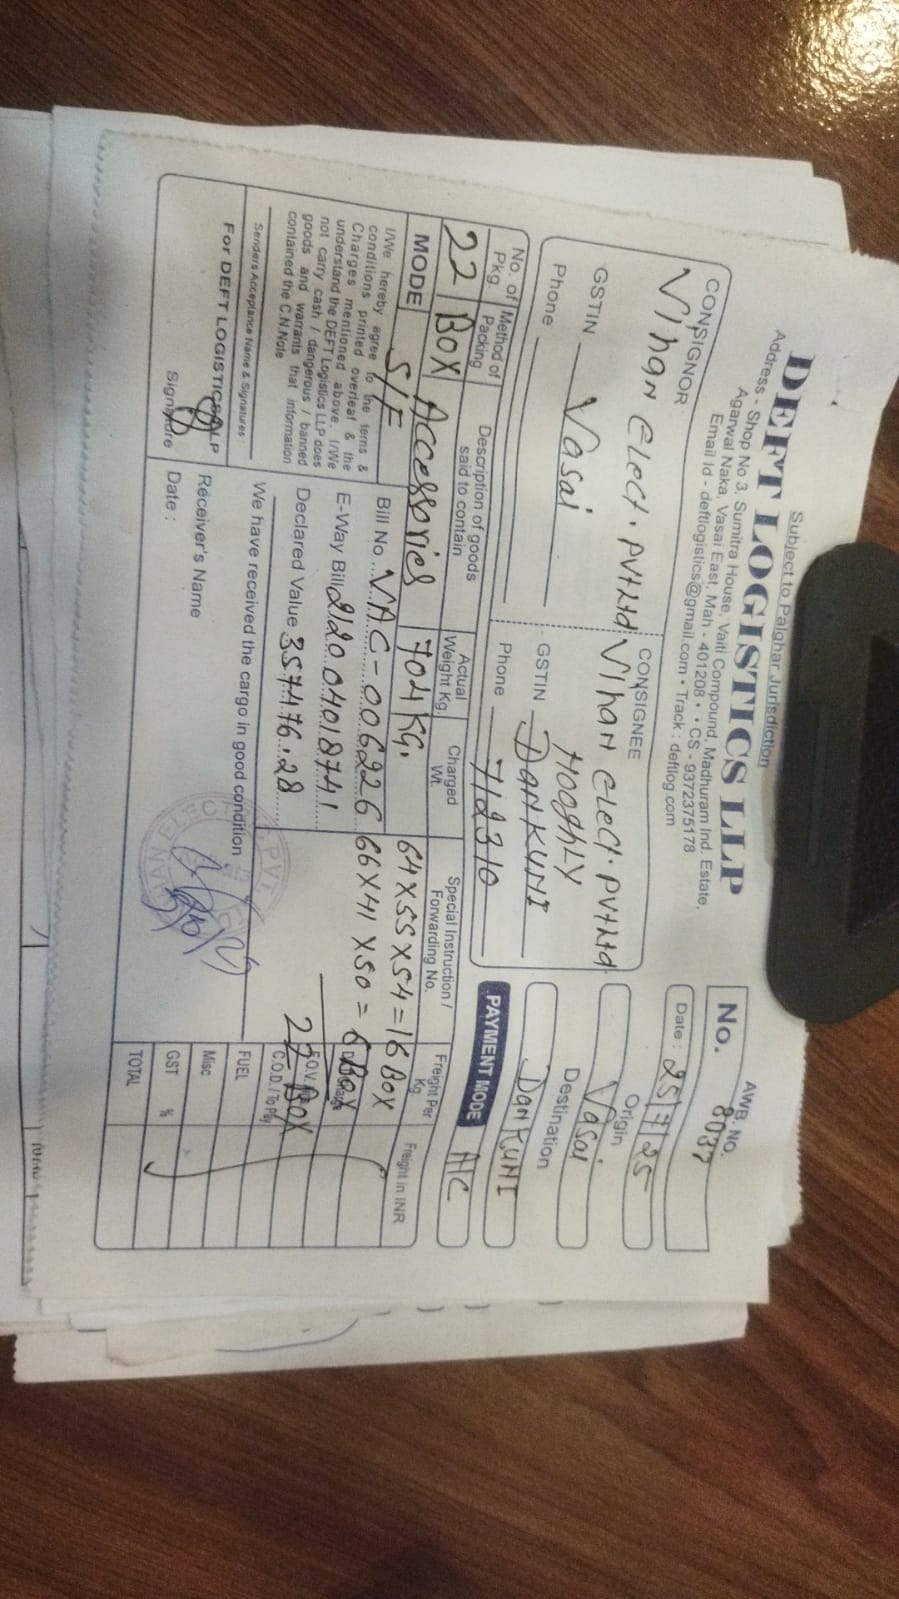 Subject to Palghar Jurisdiction
DEFT LOGISTICS LLP
Address - Shop No 3, Sumitra House, Vaiti Compound, Madhuram Ind. Estate,
Agarwal Naka, Vasai East, Mah - 401208 • • CS - 9372375178
Email Id - deftlogistics@gmail.com • Track : deftlog.com
AWB. NO.
No. 8037
Date : 25/7/25
CONSIGNOR
Vihan elect. pvt ltd
GSTIN Vasai
Phone
CONSIGNEE
Vihan elect. pvt ltd
HooghLY
GSTIN DanKUNI
Phone 712310
Origin
Vasai
Destination
DanKUNI
PAYMENT MODE A/C
No. of Pkg. Method of Packing Description of goods said to contain Actual Weight Kg. Charged Wt. Special Instruction / Forwarding No. Freight Per Kg. Freight in INR
22 BOX Accessories 704 KG. 64 X 55 X 54 = 16 BOX
66 X 41 X 50 = 6 BOX
22 BOX
MODE S/F
Bill No. VAC-006226
E-Way Bill 212004018741
Declared Value 357476.28
I/We hereby agree to the terns &
conditions printed overleaf & the
Charges mentioned above. I/We
understand the DEFT Logistics LLP does
not carry cash / dangerous / banned
goods and warrants that information
contained the C.N.Note
Senders Acceptance Name & Signatures :
For DEFT LOGISTICS LLP
Signature
We have received the cargo in good condition
Receiver's Name
Date :
F.O.V.
C.O.D. / To Pay
FUEL
Misc
GST %
TOTAL